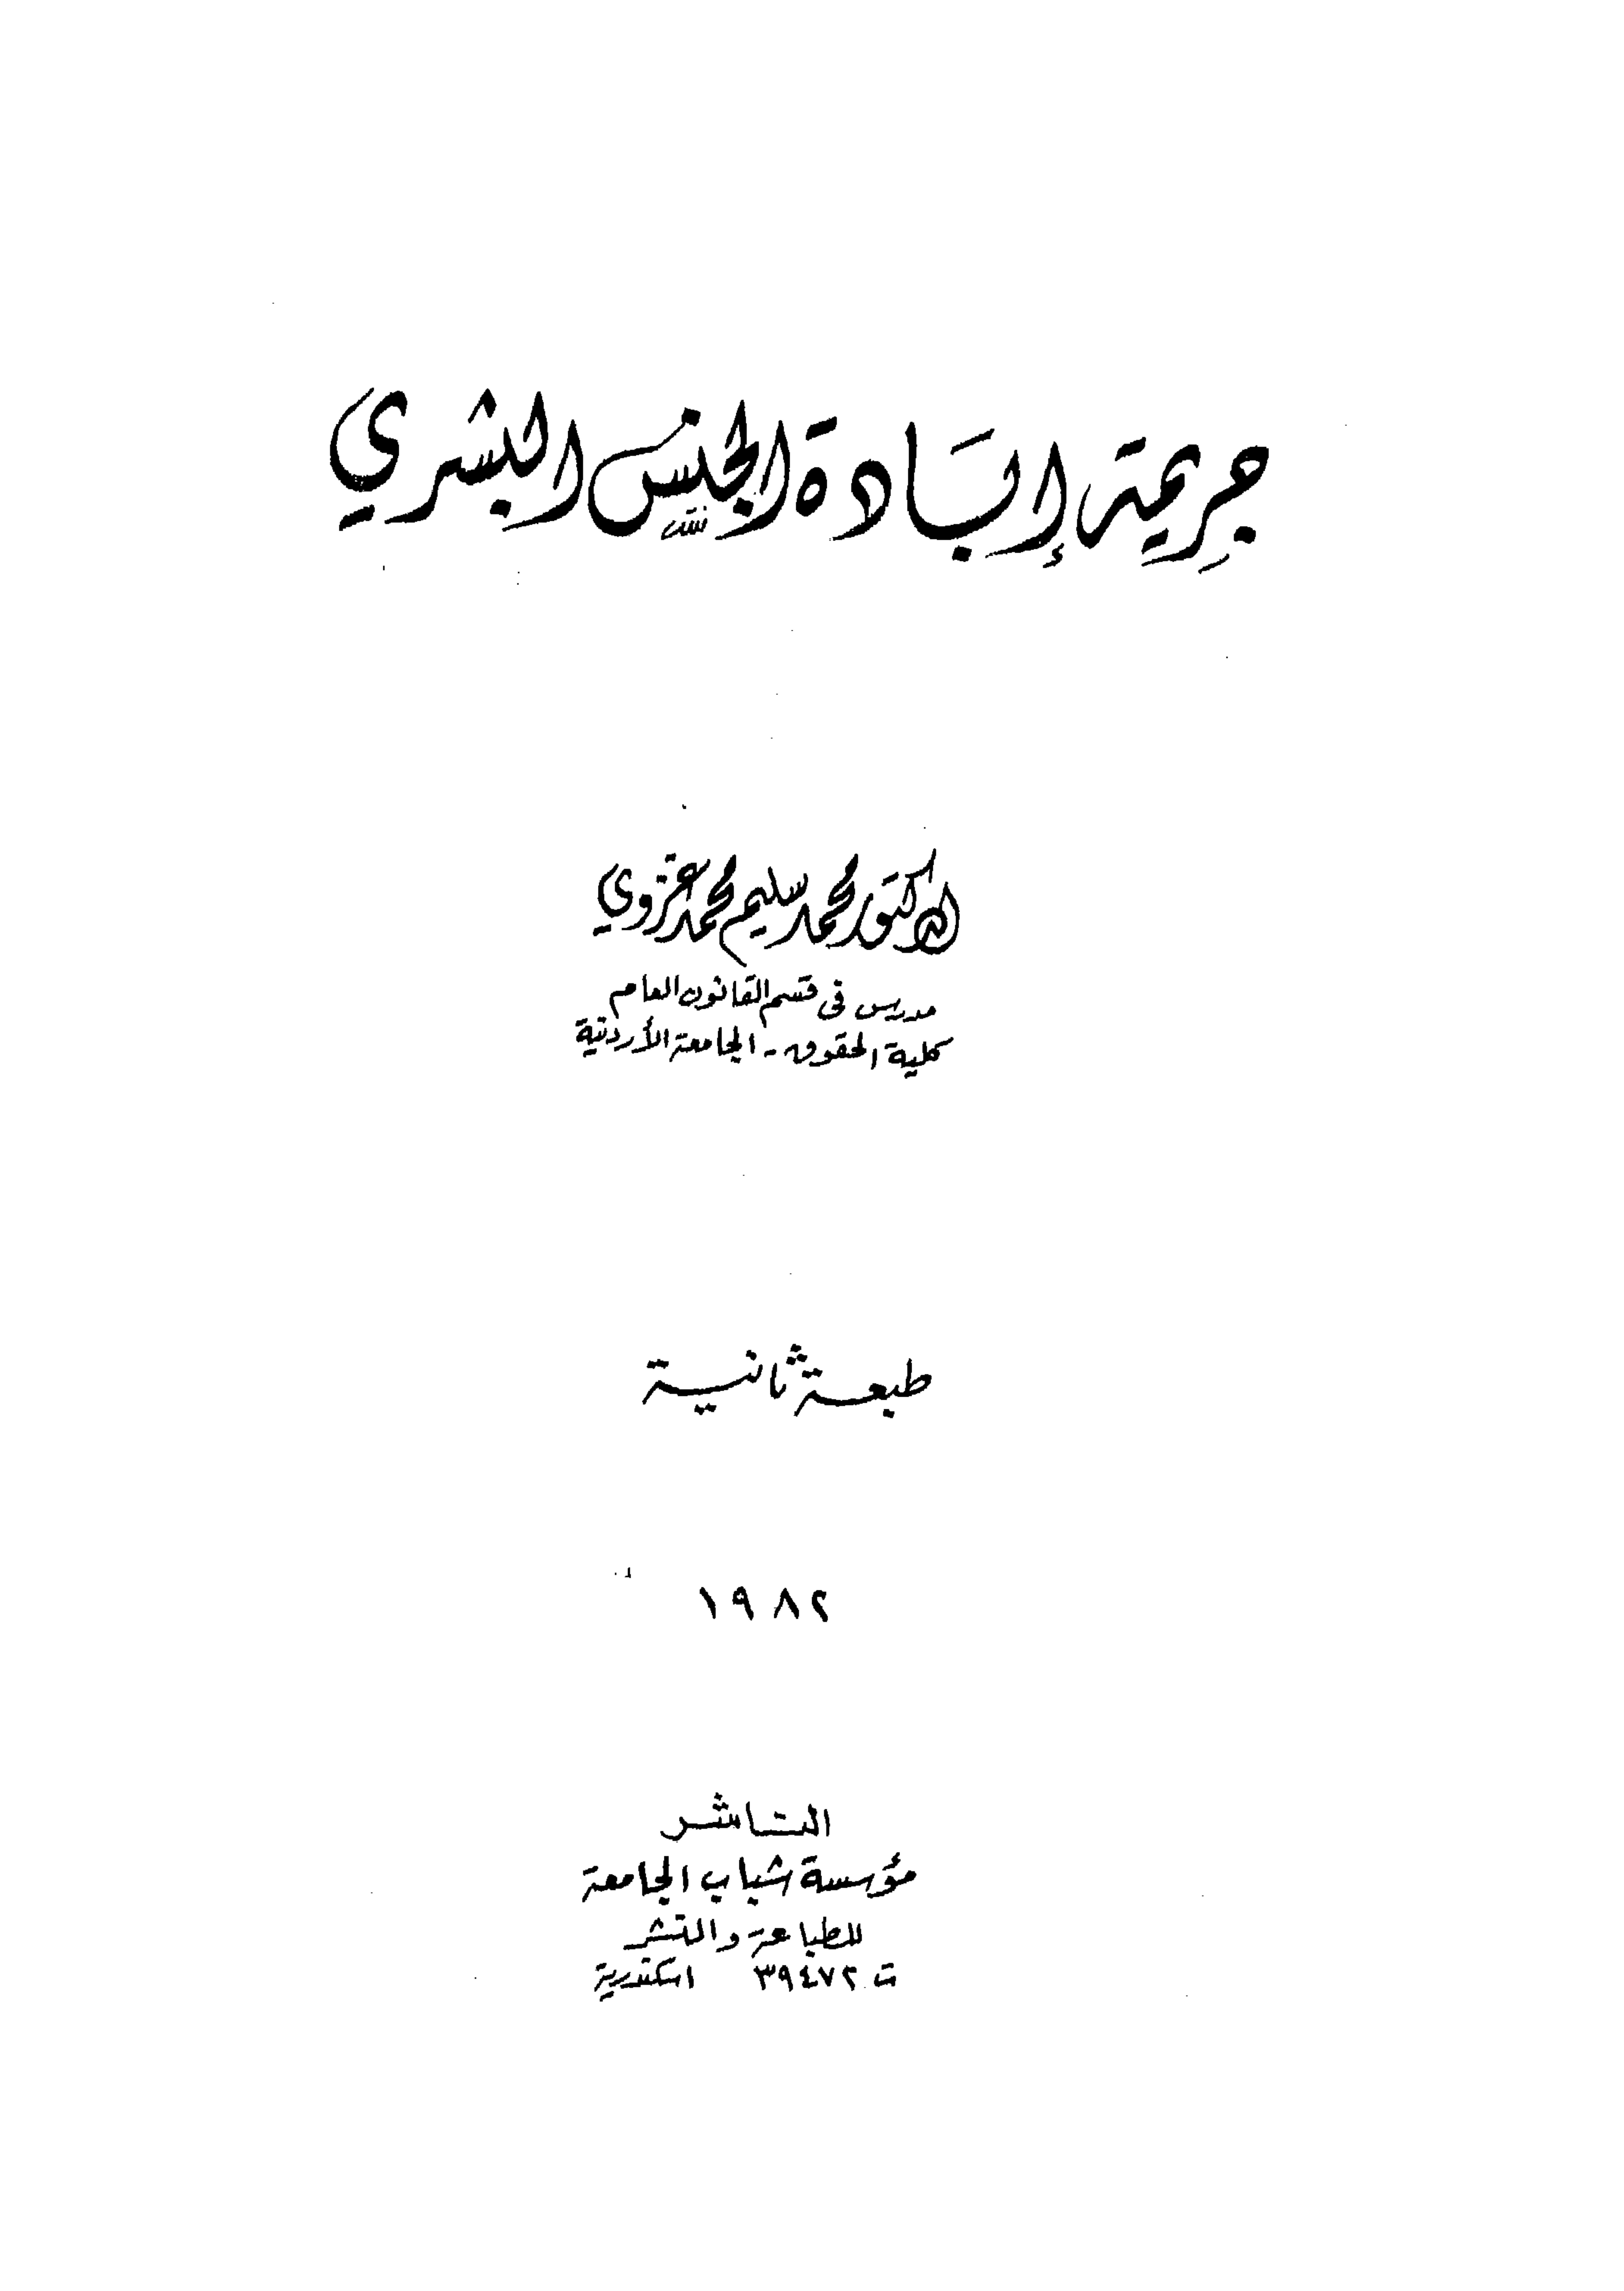 جريمة إبادة الجنس البشري
الدكتور محمد سليم محمد غزوي
مدرس فى قسم القانون العام
كلية الحقوق - الجامعة الأردنية
طبعة ثانية
١٩٨٢
الناشر
مؤسسة شباب الجامعة
للطباعة والنشر
ت ٣٩٤٧٢ اسكندرية